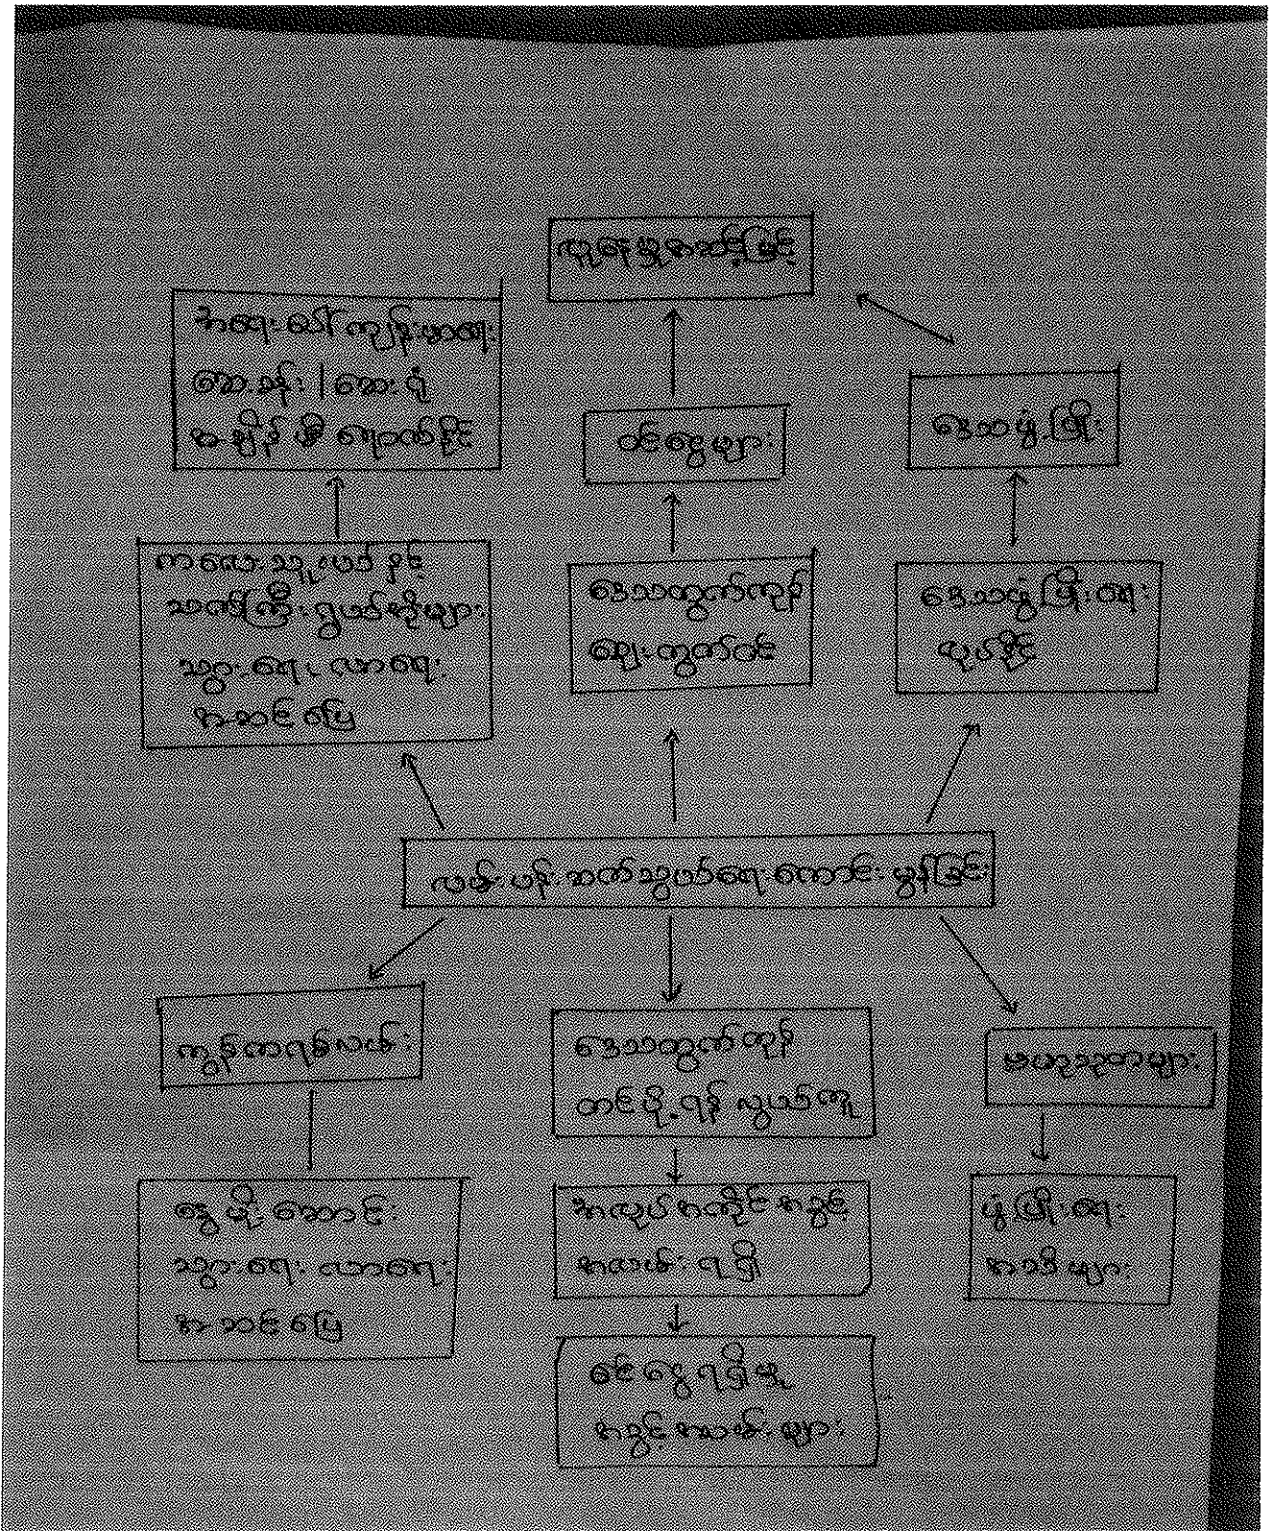 လူနေမှုအဆင့်မြင့်
အရေးပေါ်ကျန်းမာရေး
ဆေးခန်း/ဆေးရုံ
အချိန်မီရောက်နိုင်
ဝင်ငွေများ
ဒေသဖွံ့ဖြိုး
ကလေးသူငယ်နှင့်
သက်ကြီးရွယ်အိုများ
သွားရေးလာရေး
အဆင်ပြေ
ဒေသထွက်ကုန်
ဈေးကွက်ဝင်
ဒေသဖွံ့ဖြိုးရေး
လုပ်နိုင်
လမ်းပန်းဆက်သွယ်ရေးကောင်းမွန်ခြင်း
ကွန်ကရစ်လမ်း
ဒေသထွက်ကုန်
တင်ပို့ရန်လွယ်ကူ
နွေမိုးဆောင်း
သွားရေးလာရေး
အဆင်ပြေ
အလုပ်အကိုင်အခွင့်
အလမ်းရရှိ
ဖွံ့ဖြိုးရေး
ဝင်ငွေရရှိမှု
အခွင့်အလမ်းများ